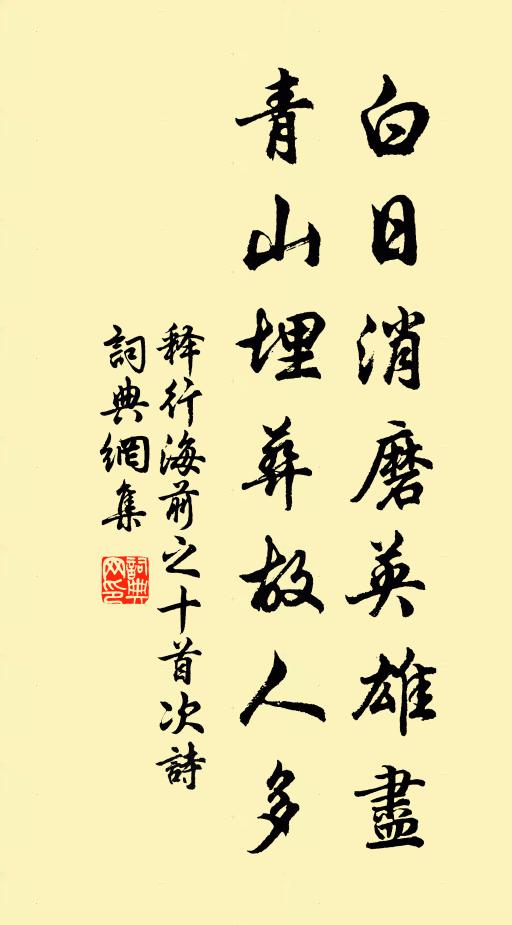 白日消磨英雄盡
青山埋葬故人多
释行海前之十首次詩
詞典網集
詞典网印